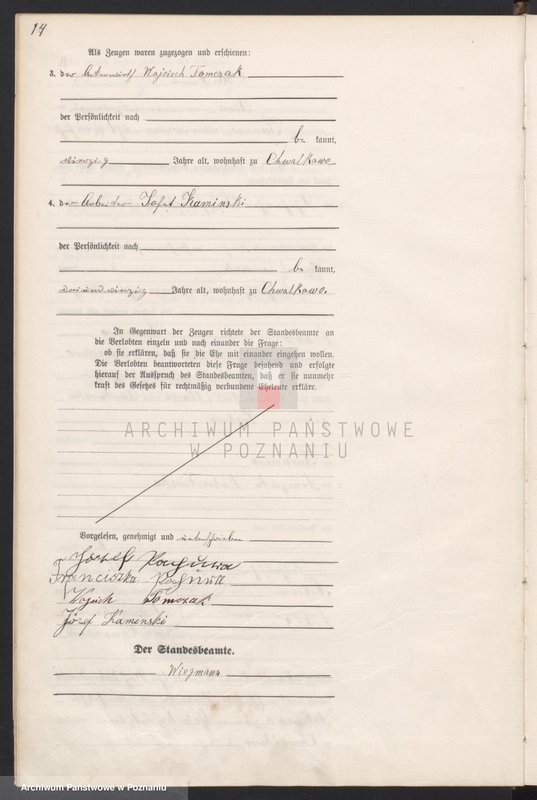 14
Als Zeugen waren zugezogen und erschienen:
3. der Wojciech Tomczak
der Persönlichkeit nach
be kannt,
vierzig Jahre alt, wohnhaft zu Chwalkowo
4. der Arbeiter Josef Kaminski
der Persönlichkeit nach
be kannt,
dreiundvierzig Jahre alt, wohnhaft zu Chwalkowo.
In Gegenwart der Zeugen richtete der Standesbeamte an
die Verlobten einzeln und nach einander die Frage:
ob sie erklären, daß sie die Ehe mit einander eingehen wollen.
Die Verlobten beantworteten diese Frage bejahend und erfolgte
hierauf der Ausspruch des Standesbeamten, daß er sie nunmehr
kraft des Gesetzes für rechtmäßig verbundene Eheleute erkläre.
ARCHIWUM PAŃSTWOWE
W POZNANIU
Vorgelesen, genehmigt und unterschrieben
Józef
Franciszka
Wojciech Tomczak
Józef Kaminski
Der Standesbeamte.
Wiegmann
Archiwum Państwowe w Poznaniu